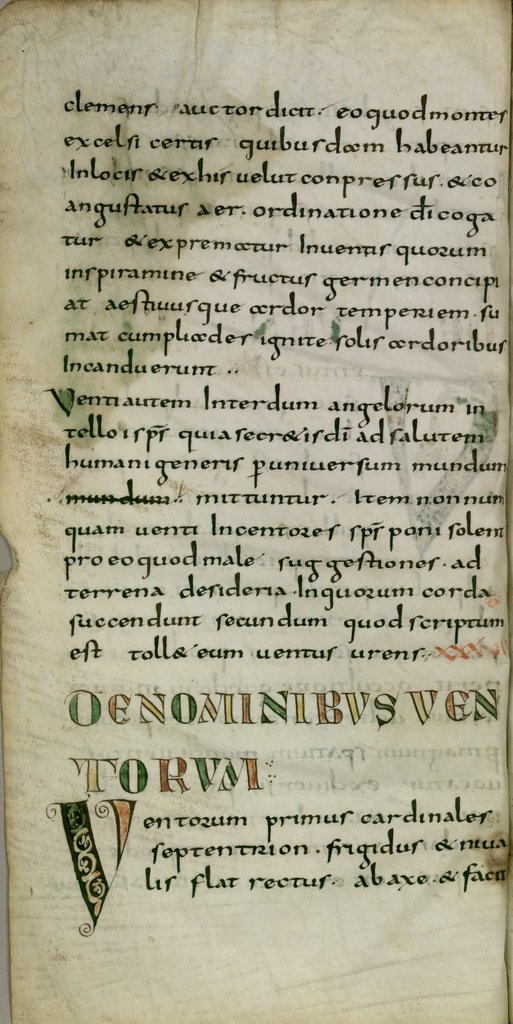 clemens auctor dicit. eo quod montes
excelsi certis quibusdam habeantur
Inlocis & exhis uelut conpressus. & co
angustatus aer. ordinatione d̄i coga
tur & expremattur Inuentis quorum
inspiramine & fructus germen concipi
at aestiuusque ardor temperiem. su
mat cum pliades ignite solis ardoribus
Incanduerunt ..
Venti autem Interdum angelorum in
tello i sp̄s quia secr&is d̄i ad salutem
humani generis p̱ uniuersum mundum
mundum. mittuntur. Item non num
quam uenti Incentores sp̄s poni solent
pro eo quod male suggestiones. ad
terrena desideria. In quorum corda
succendunt secundum quod scriptum
est toll& eum uentus urens. xxxvi
DE NOMINIBVS VEN
TORVM:
Ventorum primus cardinales
septentrion. frigidus & niua
lis flat rectus. ab axe. & facit